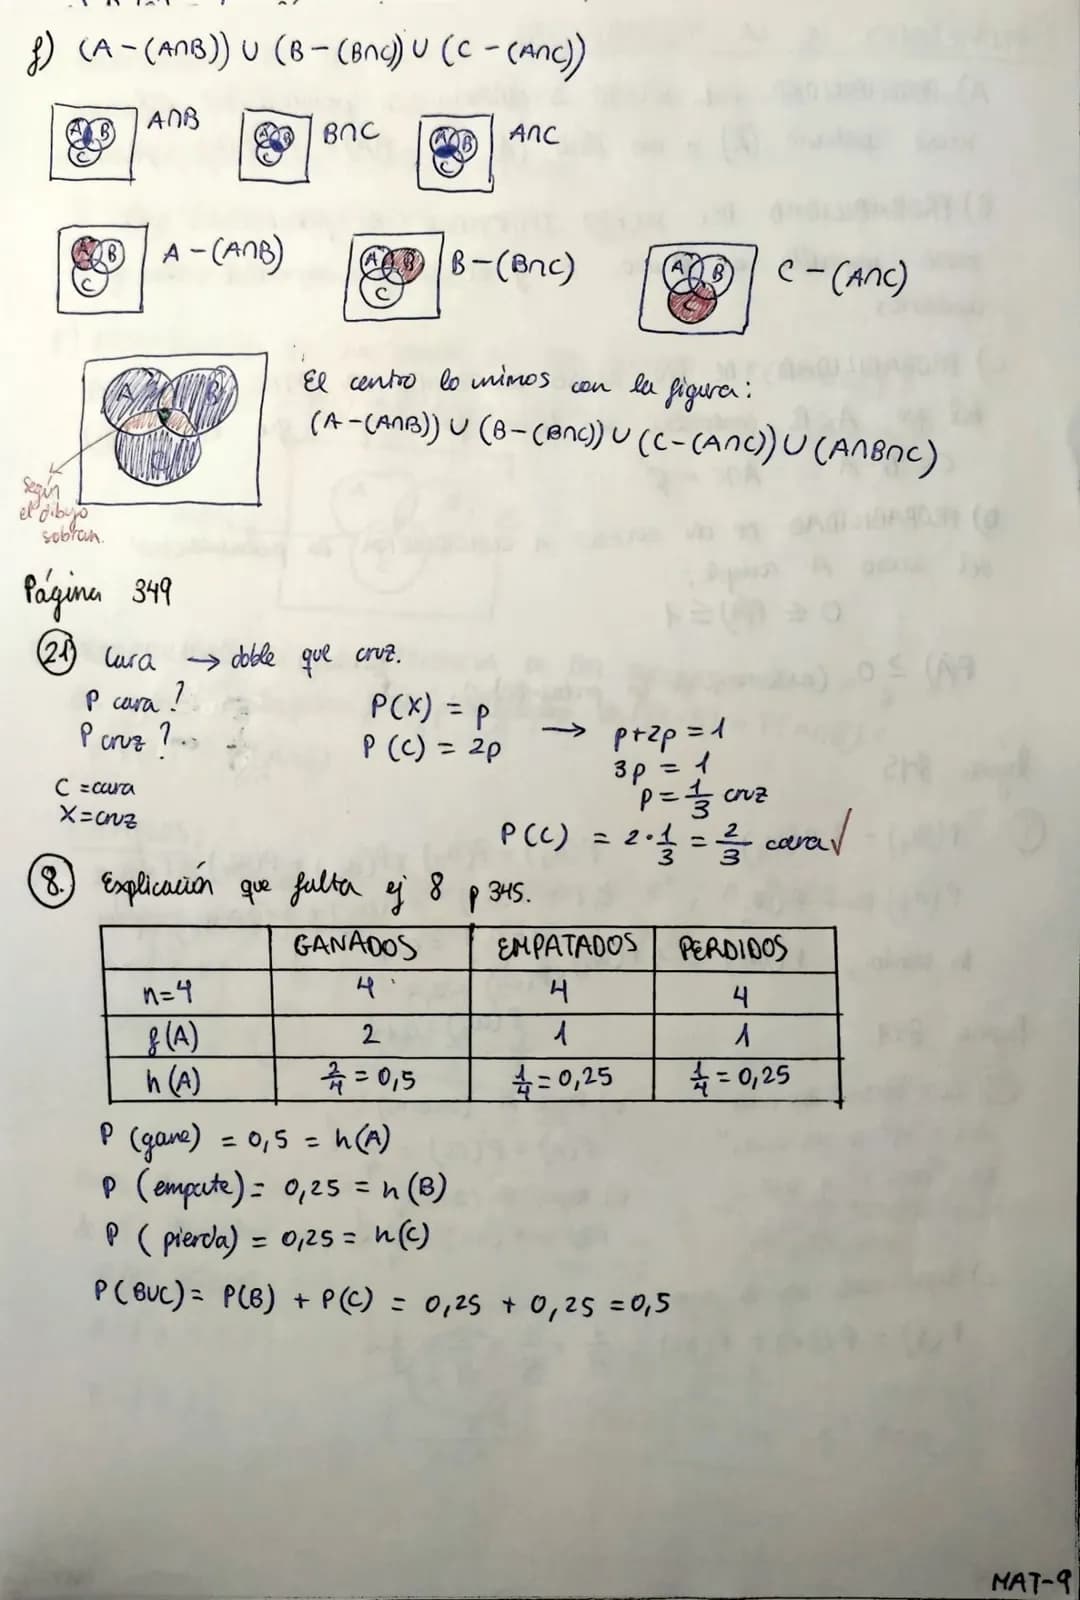 f) (A-(A∩B)) ∪ (B-(B∩C)) ∪ (C-(A∩C))
A B C A∩B A B C B∩C A B C A∩C
A B C A-(A∩B) A B C B-(B∩C) A B C C-(A∩C)
A B C
El centro lo unimos con la figura:
(A-(A∩B)) ∪ (B-(B∩C)) ∪ (C-(A∩C)) ∪ (A∩B∩C)
Según
el dibujo
sobran.
Página 349
21) Cara → doble que cruz.
P cara?
P cruz?
C = cara
X = cruz
P(X) = p
P(C) = 2p
→ p+2p = 1
3p = 1
p = 1/3 cruz
P(C) = 2·1/3 = 2/3 cara √
8. Explicación que falta ej 8 p 345.
GANADOS EMPATADOS PERDIDOS
n=4 4 4 4
f(A) 2 1 1
h(A) 2/4 = 0,5 1/4 = 0,25 1/4 = 0,25
P (gane) = 0,5 = h(A)
P (empate) = 0,25 = h(B)
P (pierda) = 0,25 = h(C)
P(B∪C) = P(B) + P(C) = 0,25 + 0,25 = 0,5
MAT-9